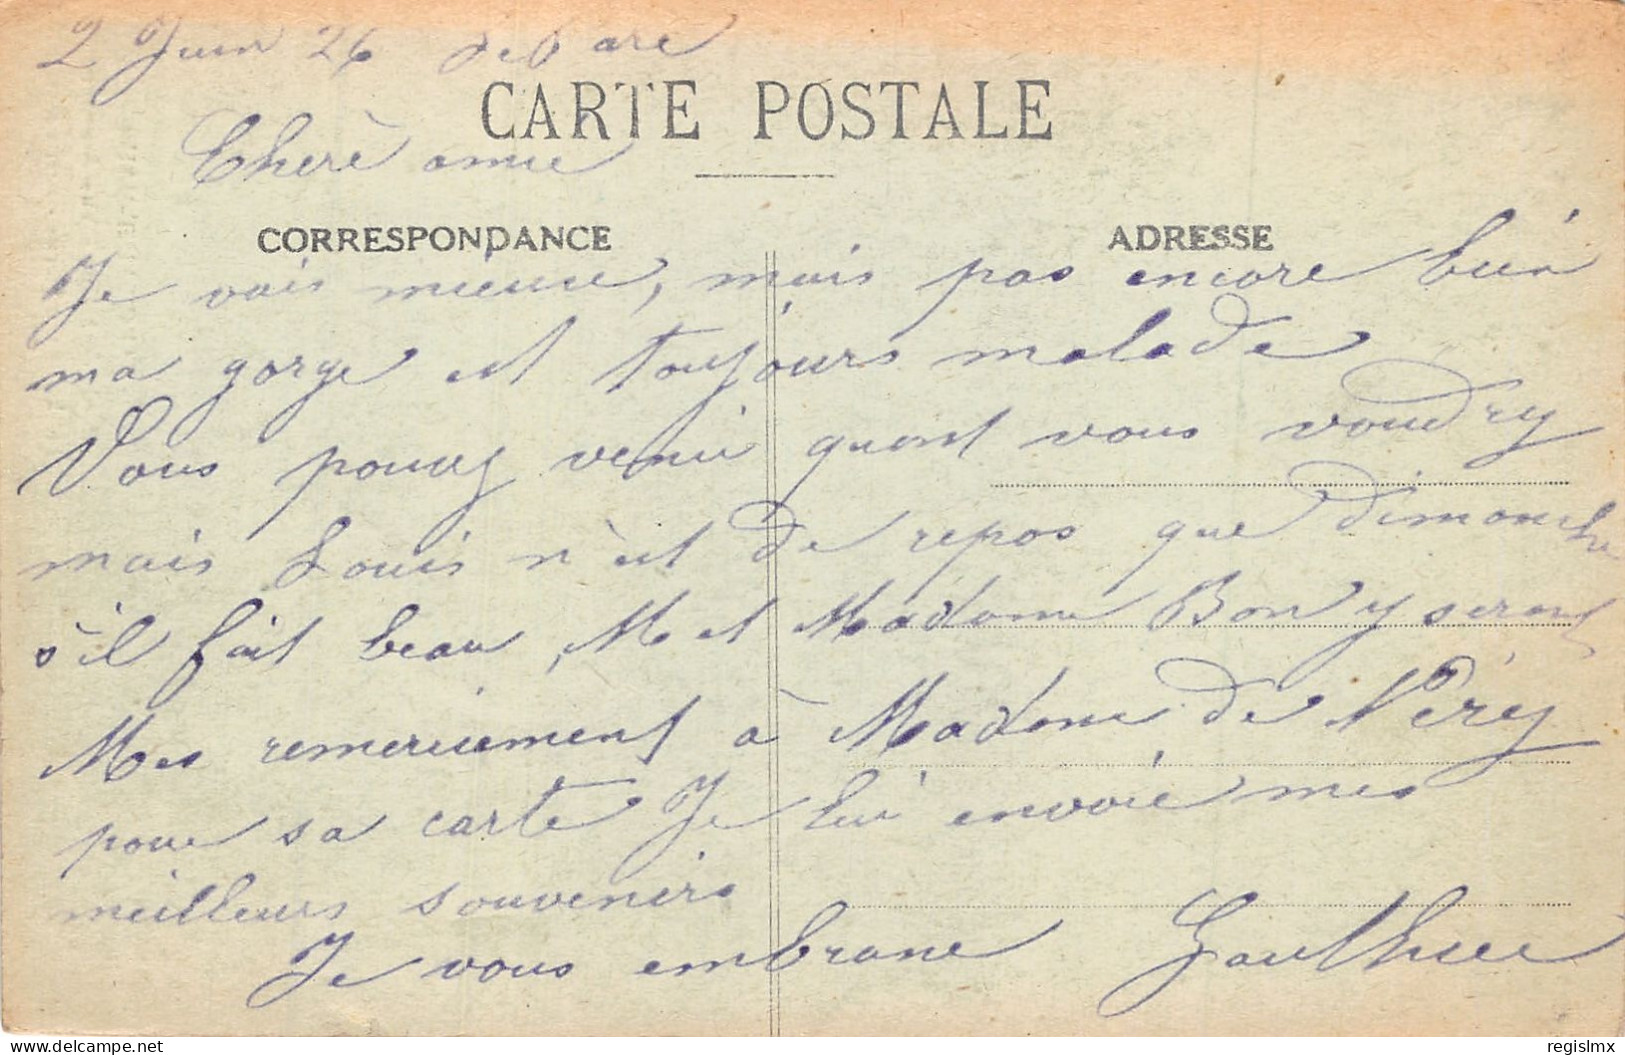 2 Juin 26
CARTE POSTALE
Cherè amie
CORRESPONDANCE
ADRESSE
Je vais mieux, mais pas encore bien
ma gorge est toujours malade
Vous pourrez venir quant vous voudrez
mais Louis n'est de repos que dimanche
s'il fait beau, M et Madame Bony seront
Mes remerciement à Madame de Nérey
pour sa carte Je lui envoie mes
meilleurs souvenirs
Je vous embrasse Gauthier
delcampe.net
regislmx